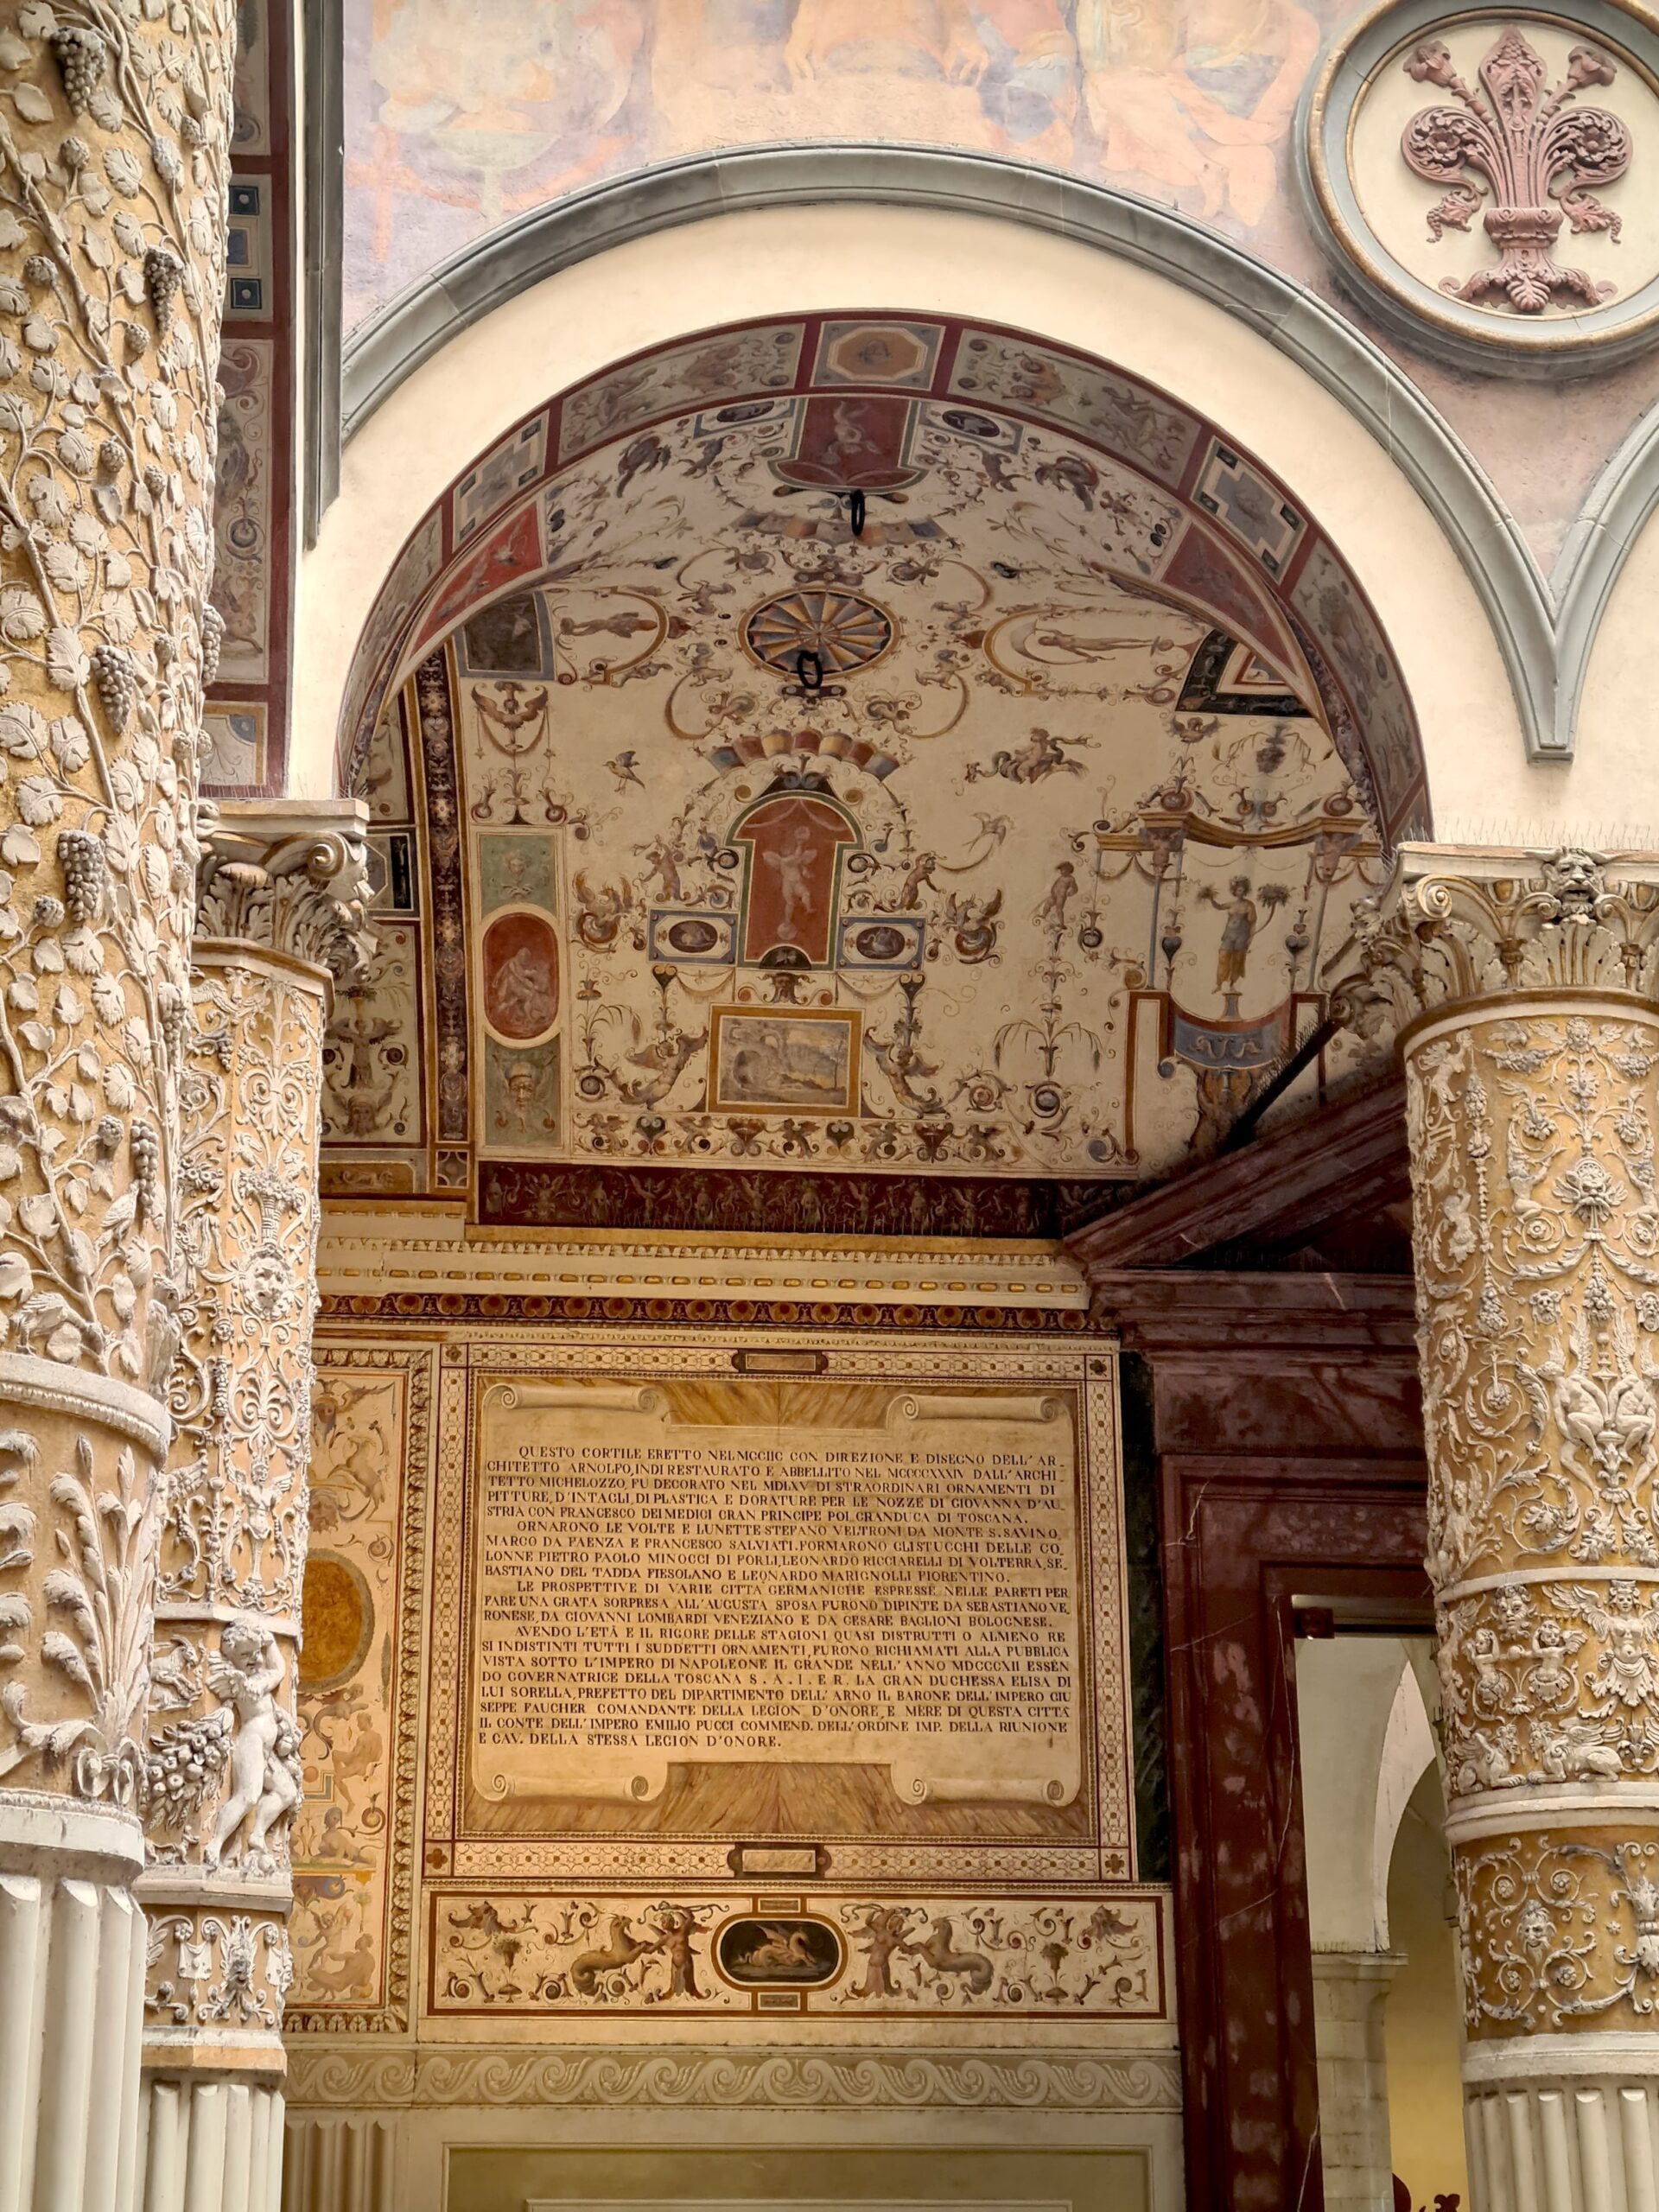 QUESTO CORTILE ERETTO NEL MCCIIC CON DIREZIONE E DISEGNO DELL'AR_
CHITETTO ARNOLFO, INDI RESTAURATO E ABBELLITO NEL MCCCCXXXIV DALL'ARCHI_
TETTO MICHELOZZO, FU DECORATO NEL MDLXV DI STRAORDINARI ORNAMENTI DI
PITTURE, D'INTAGLI, DI PLASTICA E DORATURE PER LE NOZZE DI GIOVANNA D'AU_
STRIA CON FRANCESCO DEI MEDICI GRAN PRINCIPE POI GRANDUCA DI TOSCANA.
ORNARONO LE VOLTE E LUNETTE STEFANO VELTRONI DA MONTE S. SAVINO,
MARCO DA FAENZA E FRANCESCO SALVIATI. FORMARONO GLI STUCCHI DELLE CO_
LONNE PIETRO PAOLO MINOCCI DI FORLI, LEONARDO RICCIARELLI DI VOLTERRA, SE_
BASTIANO DEL TADDA FIESOLANO E LEONARDO MARIGNOLLI FIORENTINO.
LE PROSPETTIVE DI VARIE CITTA' GERMANICHE ESPRESSE NELLE PARETI PER
FARE UNA GRATA SORPRESA ALL'AUGUSTA SPOSA FURONO DIPINTE DA SEBASTIANO VE_
RONESE, DA GIOVANNI LOMBARDI VENEZIANO E DA CESARE BAGLIONI BOLOGNESE.
AVENDO L'ETÀ E IL RIGORE DELLE STAGIONI QUASI DISTRUTTI O ALMENO RE
SI INDISTINTI TUTTI I SUDDETTI ORNAMENTI, FURONO RICHIAMATI ALLA PUBBLICA
VISTA SOTTO L'IMPERO DI NAPOLEONE IL GRANDE NELL'ANNO MDCCCXII ESSEN
DO GOVERNATRICE DELLA TOSCANA S. A. I. E R. LA GRAN DUCHESSA ELISA DI
LUI SORELLA, PREFETTO DEL DIPARTIMENTO DELL'ARNO IL BARONE DELL'IMPERO GIU
SEPPE FAUCHER COMANDANTE DELLA LEGION D'ONORE, E MERE DI QUESTA CITTÀ
IL CONTE DELL'IMPERO EMILIO PUCCI COMMEND. DELL'ORDINE IMP. DELLA RIUNIONE
E CAV. DELLA STESSA LEGION D'ONORE.